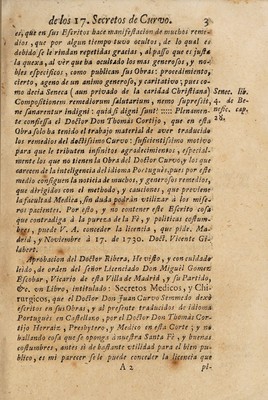 de los 17. Secretos de Curvo. 3
es, que en sus Escritos hace manifestacion de muchos reme-
dios, que por algun tiempo tuvo ocultos, de lo qual es
debido se le rindan repetidas gracias, al passo que es justa
la quexa, al vèr que ha ocultado los mas generosos, y no-
bles especificos, como publican sus Obras: procedimiento,
cierto, ageno de un animo generoso, y caritativo; pues co-
mo decia Seneca (aun privado de la caridad Christiana) Senec. lib.
Compositionem remediorum salutarium, nemo supresit, 4. de Be-
ne sanarentur indigni: quid si digni sunt? ::::: Plenamen- nefic. cap.
te confiessa el Doctor Don Thomàs Cortijo, que en esta 28.
Obra solo ha tenido el trabajo material de aver traducido
los remedios del doctissimo Curvo: suficientissimo motivo
para que le tributen infinitos agradecimientos, especial-
mente los que no tienen la Obra del Doctor Curvo, y los que
carecen de la inteligencia del idioma Portuguès, pues por este
medio consiguen la noticia de muchos, y generosos remedios,
que dirigidos con el methodo, y cauciones, que previene
la facultad Medica, sin duda podràn utilizar à los mise-
ros pacientes. Por esto, y no contener este Escrito cosa,
que contradiga à la pureza de la Fè, y politicas costum-
bres, puede V. A. conceder la licencia, que pide. Ma-
drid, y Noviembre à 17. de 1730. Doct. Vicente Gi-
labert.
Aprobacion del Doctor Ribera, He visto, y con cuidado
leido, de orden del señor Licenciado Don Miguel Gomez
Escobar, Vicario de esta Villa de Madrid, y su Partido,
&c. un Libro, intitulado: Secretos Medicos, y Chi-
rurgicos, que el Doctor Don Juan Curvo Semmedo dexò
escritos en sus Obras, y al presente traducidos de idioma
Portuguès en Castellano, por el Doctor Don Thomàs Cor-
tijo Herraiz, Presbytero, y Medico en esta Corte; y no
hallando cosa que se oponga à nuestra Santa Fè, y buenas
costumbres, antes si de bastante utilidad para el bien pu-
blico, es mi parecer se le puede conceder la licencia que
A 2 pi-